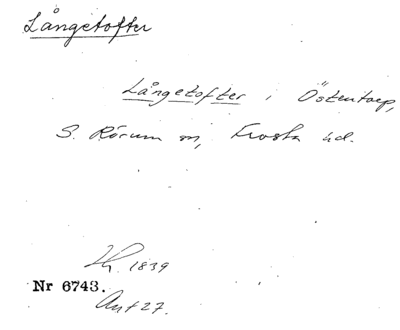 Långetofter
Långetofter i Östentorp,
S. Rörum sn, Frosta hd.
Lh. 1839
Nr 6743.
Ant 27.